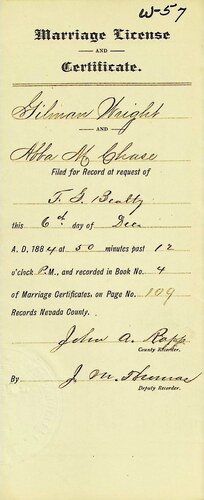 W-57
Marriage License
AND
Certificate.
Gilman Wright
AND
Abba M Chase
Filed for Record at request of
T. G. Beatty
this 6d day of Dec
A. D. 1884 at 50 minutes past 12
o'clock P.M., and recorded in Book No. 4
of Marriage Certificates, on Page No. 109
Records Nevada County.
John A. Rapp
County Recorder.
By J. M. Thomas
Deputy Recorder.